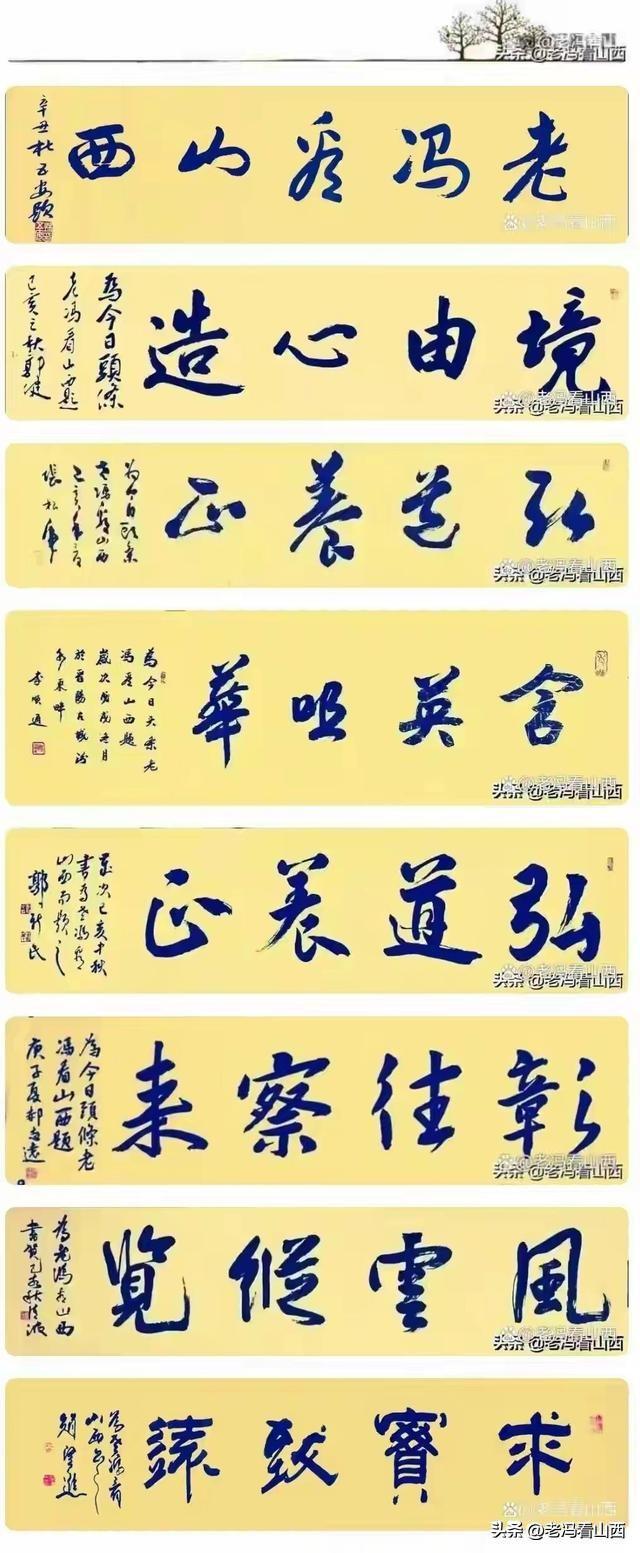 头条 @老冯看山西
老冯看山西
辛丑杜
头条 @老冯看山西
境由心造
為今日頭條
老冯看山西題
己亥之秋郭健
头条 @老冯看山西
弘道養正
为今日頭条
老馮看山西
张
头条 @老冯看山西
含英咀華
為今日头条老
冯看山西題
歲次戊戌冬月
於晋陽古城汾
水東畔
李順通
头条 @老冯看山西
弘道养正
歲次己亥中秋
書為老冯看
山西而題之
郭新民
头条 @老冯看山西
彰往察来
為今日頭條老
冯看山西題
庚子夏郝
头条 @老冯看山西
風雲縱覽
為老冯看山西
書賀己亥秋
头条 @老冯看山西
求實致遠
為老冯看
山西
趙望進
头条 @老冯看山西